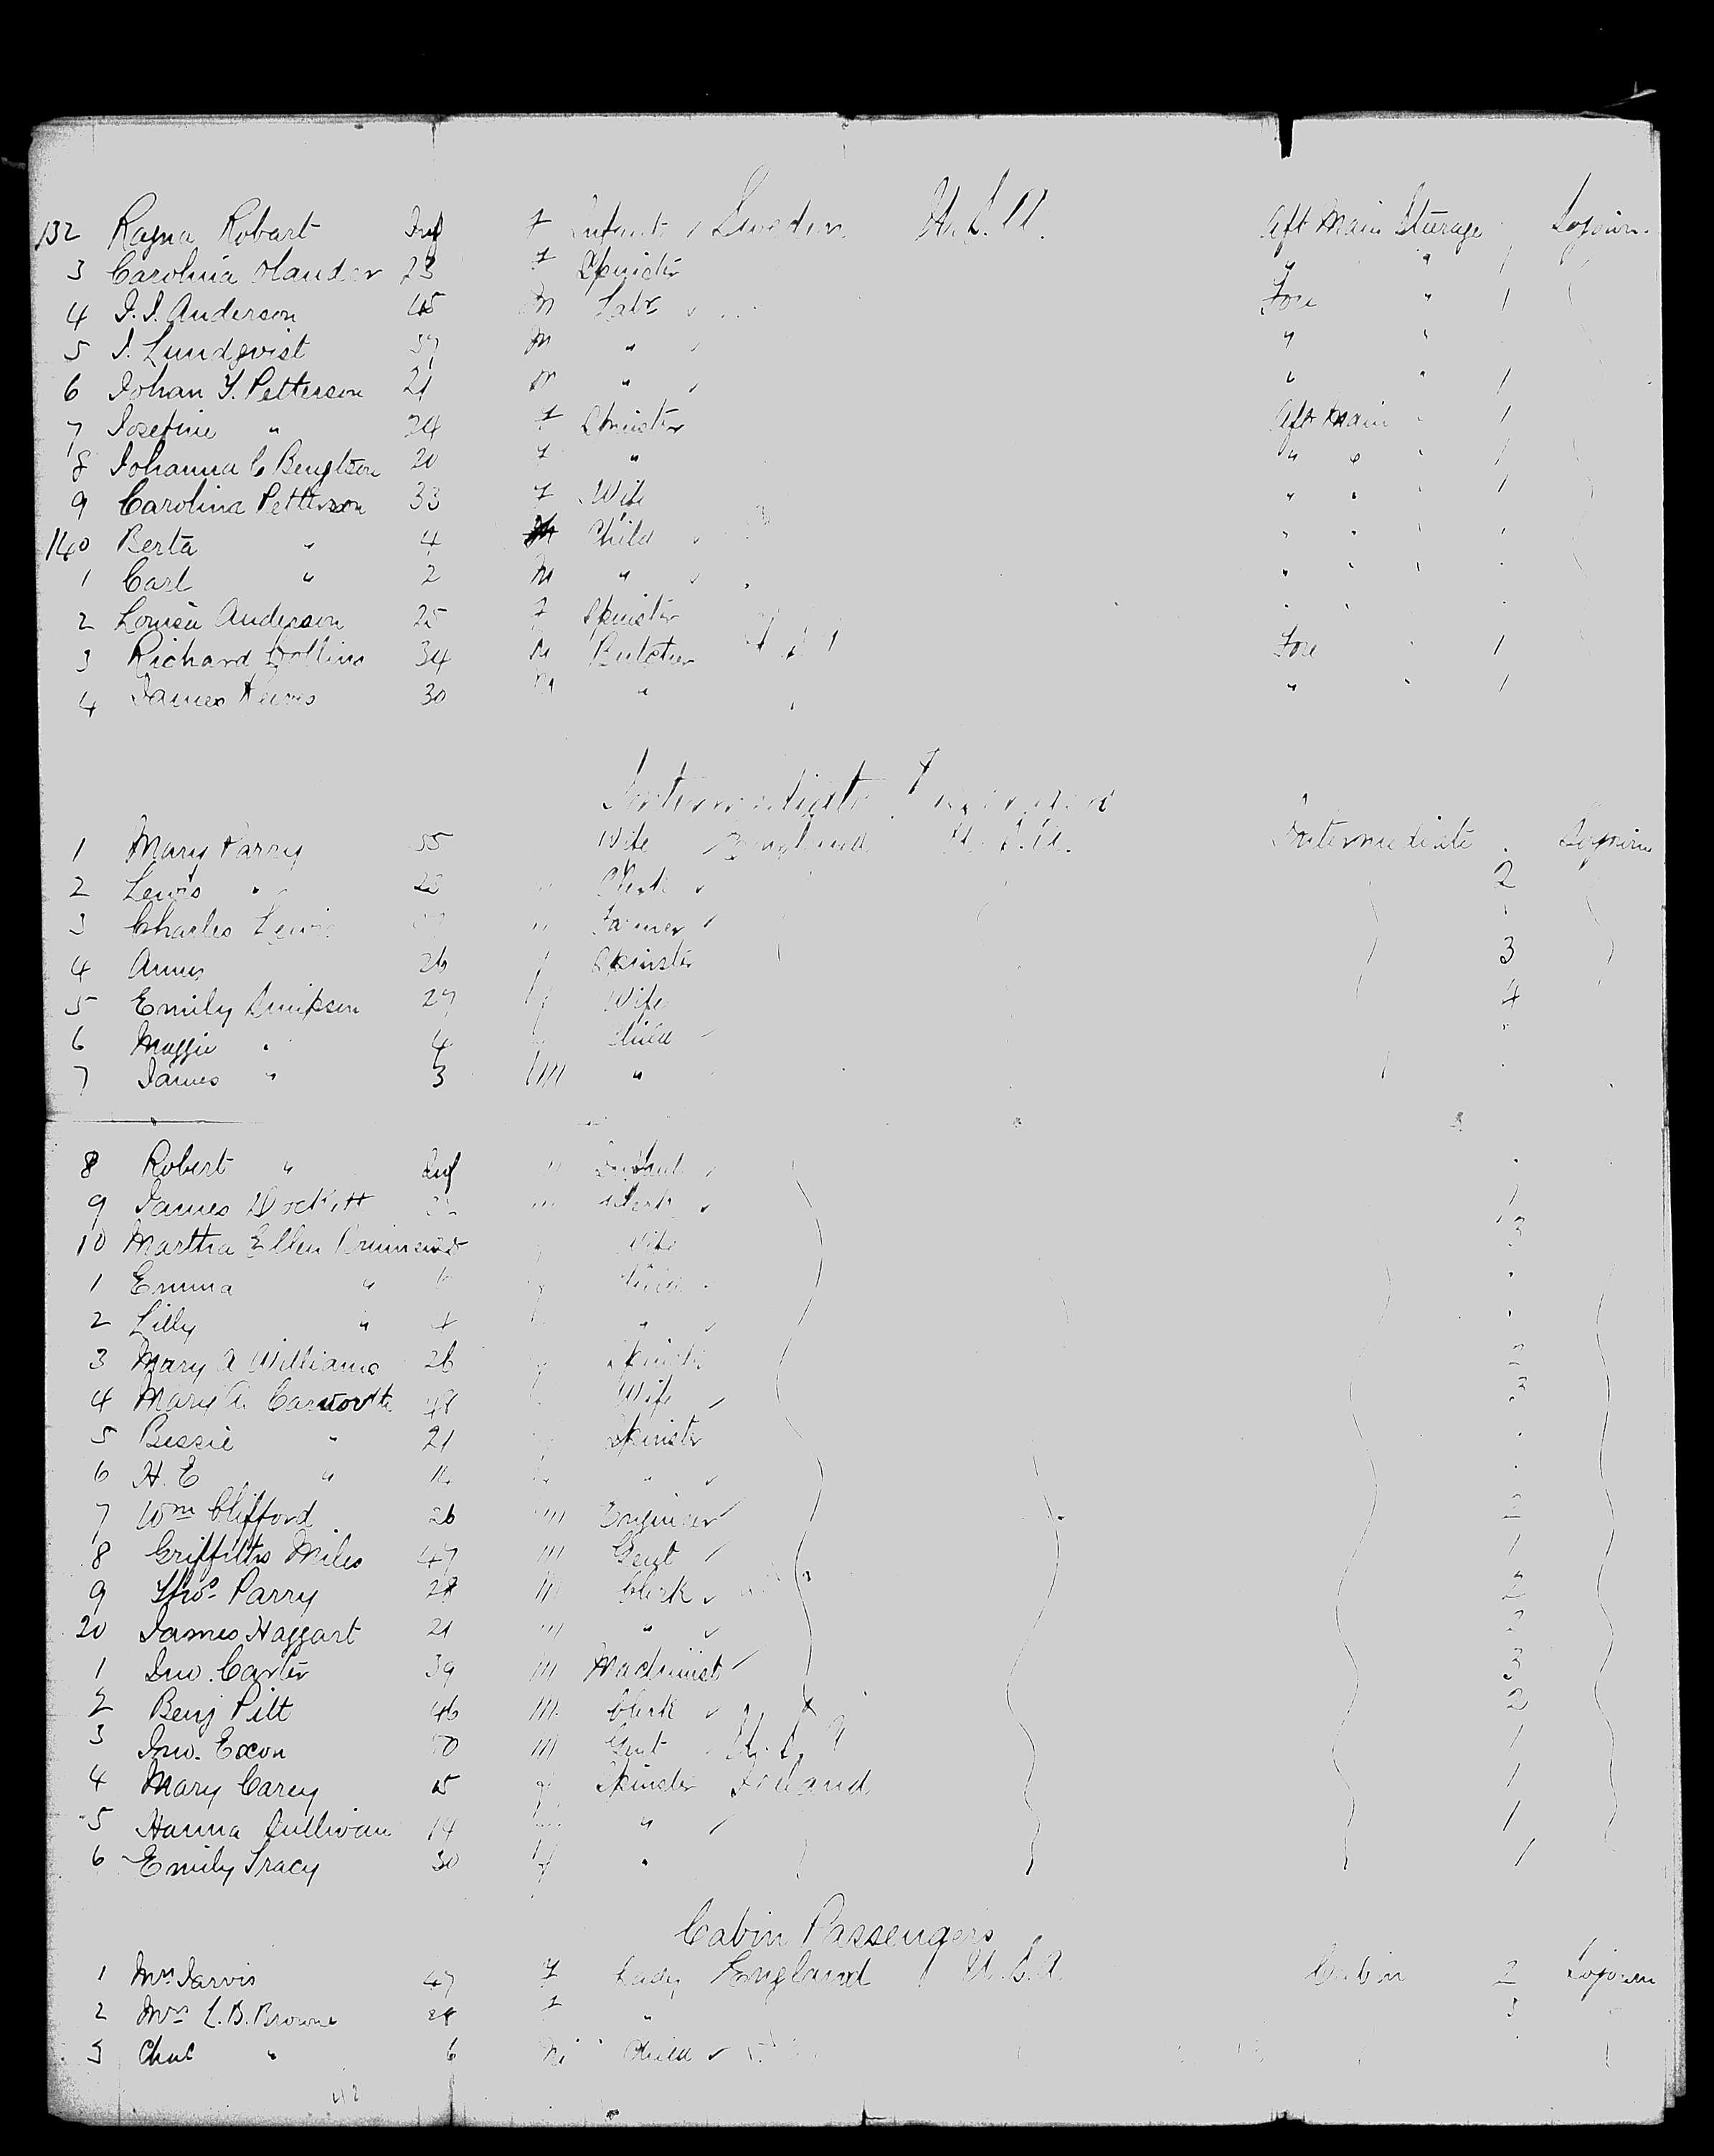 132 Ragna Robart Inf f Infant Sweden U.S.A. Aft Main Sturage Sojourn
3 Carolina Olander 23 f Spinster " "
4 J. J. Anderson 45 m Labr Fore " 1
5 J. Lundqvist m " " "
6 Johan Y. Petterson 21 m " " " 1
7 Josefine " 24 f Spinster Aft Main " 1
8 Johanna C Bengtson 20 f " " " " 1
9 Carolina Petterson 33 f Wife " " " 1
140 Berta " 4 Child " " "
1 Carl " 2 m " " " "
2 Louisa Anderson 25 f Spinster " "
3 Richard Collins 34 m Butcher Fore " 1
4 James 30 m " " " 1
Intermediate
1 Mary Parry 55 Wife England U.S.A. Intermediate Sojourn
2 Lewis " 23 Clerk 2
3 Charles Lewis Farmer "
4 Annes 26 f Spinster 3
5 Emily Simpson 27 f Wife 4
6 Maggie " 4 Child "
7 James " 3 m "
8 Robert " Inf Infant
9 James Dockitt Clerk 1
10 Martha Ellen Wife 3
1 Emma " Child "
2 Lilly " 4 " "
3 Mary A Williams 26 Spinster 2
4 Mary A. Carworth 48 Wife 2
5 Bessie " 21 Spinster "
6 H. E " "
7 Wm Clifford 26 m Engineer 2
8 Griffiths Miles 47 m Gent 1
9 Thos. Parry m Clerk 2
20 James Haggart 21 m " 2
1 Jno. Carter 39 m Machinist 3
2 Benj Pitt 46 m Clerk 2
3 Jno. Exon 50 m Gent U.S.A 1
4 Mary Carey 15 f Spinster Ireland 1
5 Hanna Sullivan 14 " 1
6 Emily Tracy 30 f " 1
Cabin Passengers
1 Mrs Jarvis 47 f Lady England U.S.A. Cabin 2 Sojourn
2 Mrs L. B. Browne f " 3
3 Chas " 6 m Child